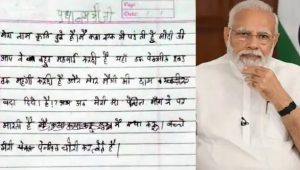 प्रधानमंत्री जी
मेरा नाम कृति दुबे है। मैं कक्षा एक में पढ़ती हूँ मोदी जी
आप ने बहुत महंगाई करदी है यहां तक पेन्सिल रबड़
तक महंगी करदी है और मेरी मैगी की दाम भी
बढ़ा दिये है। अब मेरी माँ पेन्सिल माँगने पर
मारती है मैं क्या करू। बच्चे
मेरी पेन्सिल चोरी कर लेते है।